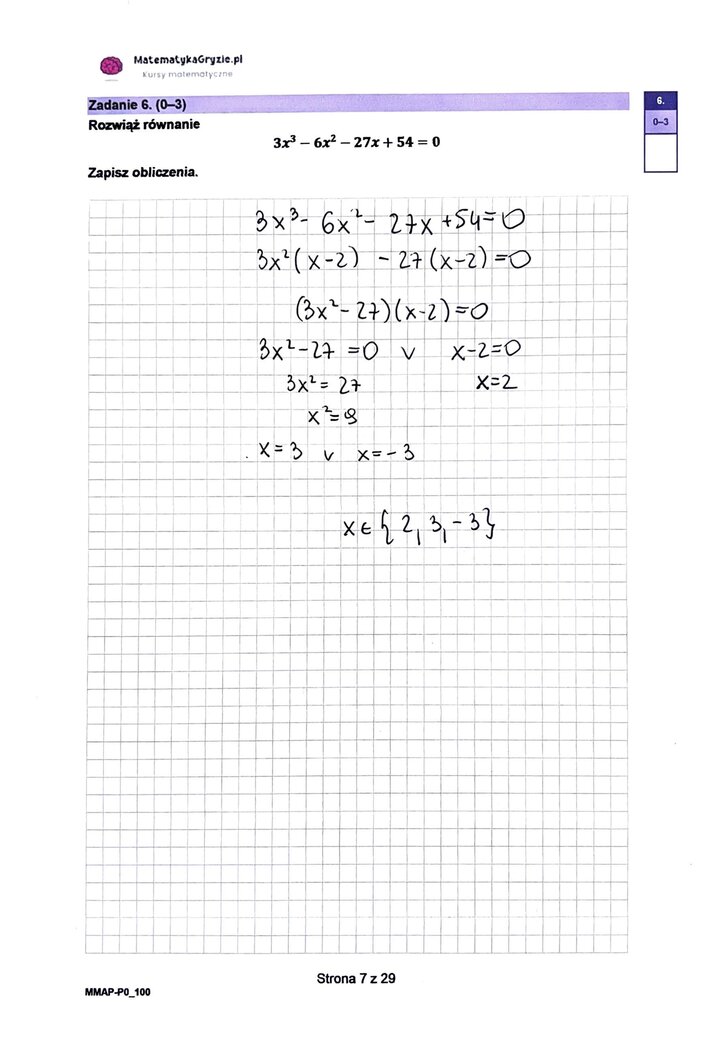 MatematykaGryzie.pl
Kursy matematyczne
Zadanie 6. (0–3)
6.
0–3
Rozwiąż równanie
3x³ − 6x² − 27x + 54 = 0
Zapisz obliczenia.
3x³ - 6x² - 27x + 54 = 0
3x²(x-2) - 27(x-2) = 0
(3x² - 27)(x-2) = 0
3x² - 27 = 0 v x-2=0
3x² = 27 x=2
x² = 9
x = 3 v x = -3
x ∈ {2, 3, -3}
Strona 7 z 29
MMAP-P0_100